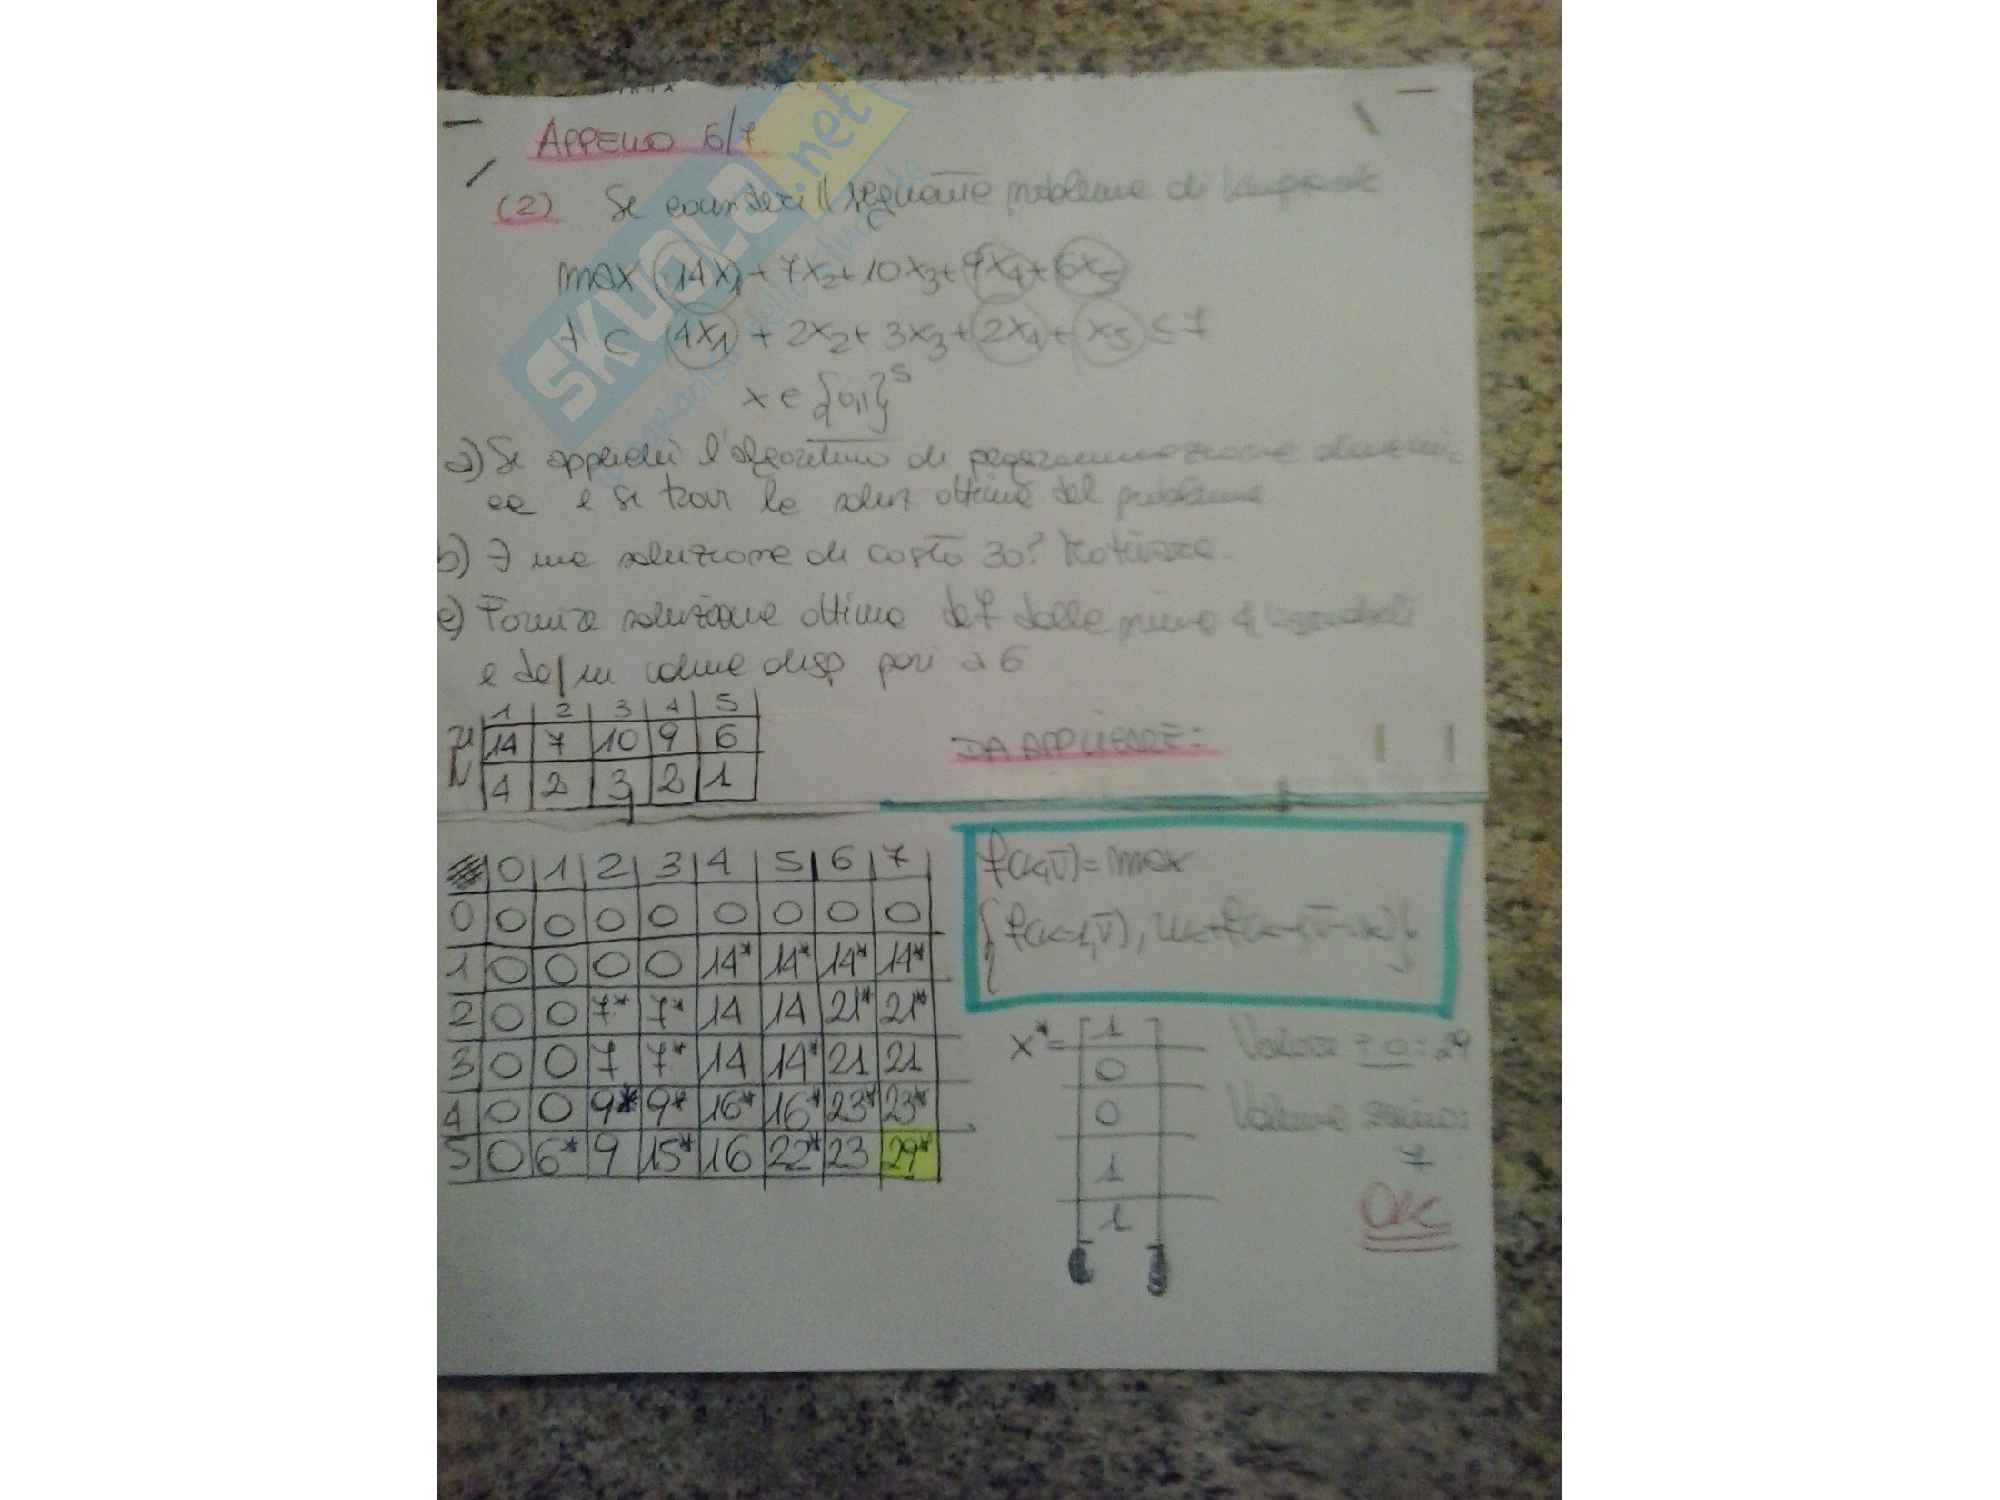 APPELLO 6/7
(2) Si consideri il seguente problema di
max 14x1 + 7x2 + 10x3 + 9x4 + 6x5
4x1 + 2x2 + 3x3 + 2x4 + x5 ≤ 7
x ∈ {0,1}^5
a) Si applichi l'algoritmo di programmazione dinami-
ca e si trovi la soluz ottima del problema
b) ∃ una soluzione di costo 30? Motivare.
c) Fornire soluzione ottima def dalle prime 4
e def un volume disp pari a 6
1 2 3 4 5
14 7 10 9 6
4 2 3 2 1
DA APPLICARE:
0 1 2 3 4 5 6 7
0 0 0 0 0 0 0 0 0
1 0 0 0 0 14* 14* 14* 14*
2 0 0 7* 7* 14 14 21* 21*
3 0 0 7 7* 14 14* 21 21
4 0 0 9* 9* 16* 16* 23* 23*
5 0 6* 9 15* 16 22* 23 29*
f(k,V) = max
{f(k-1,V), uk+f(k-1,V-vk)}
x* = 1
0
0
1
1
29
Volume
7
skuola.net